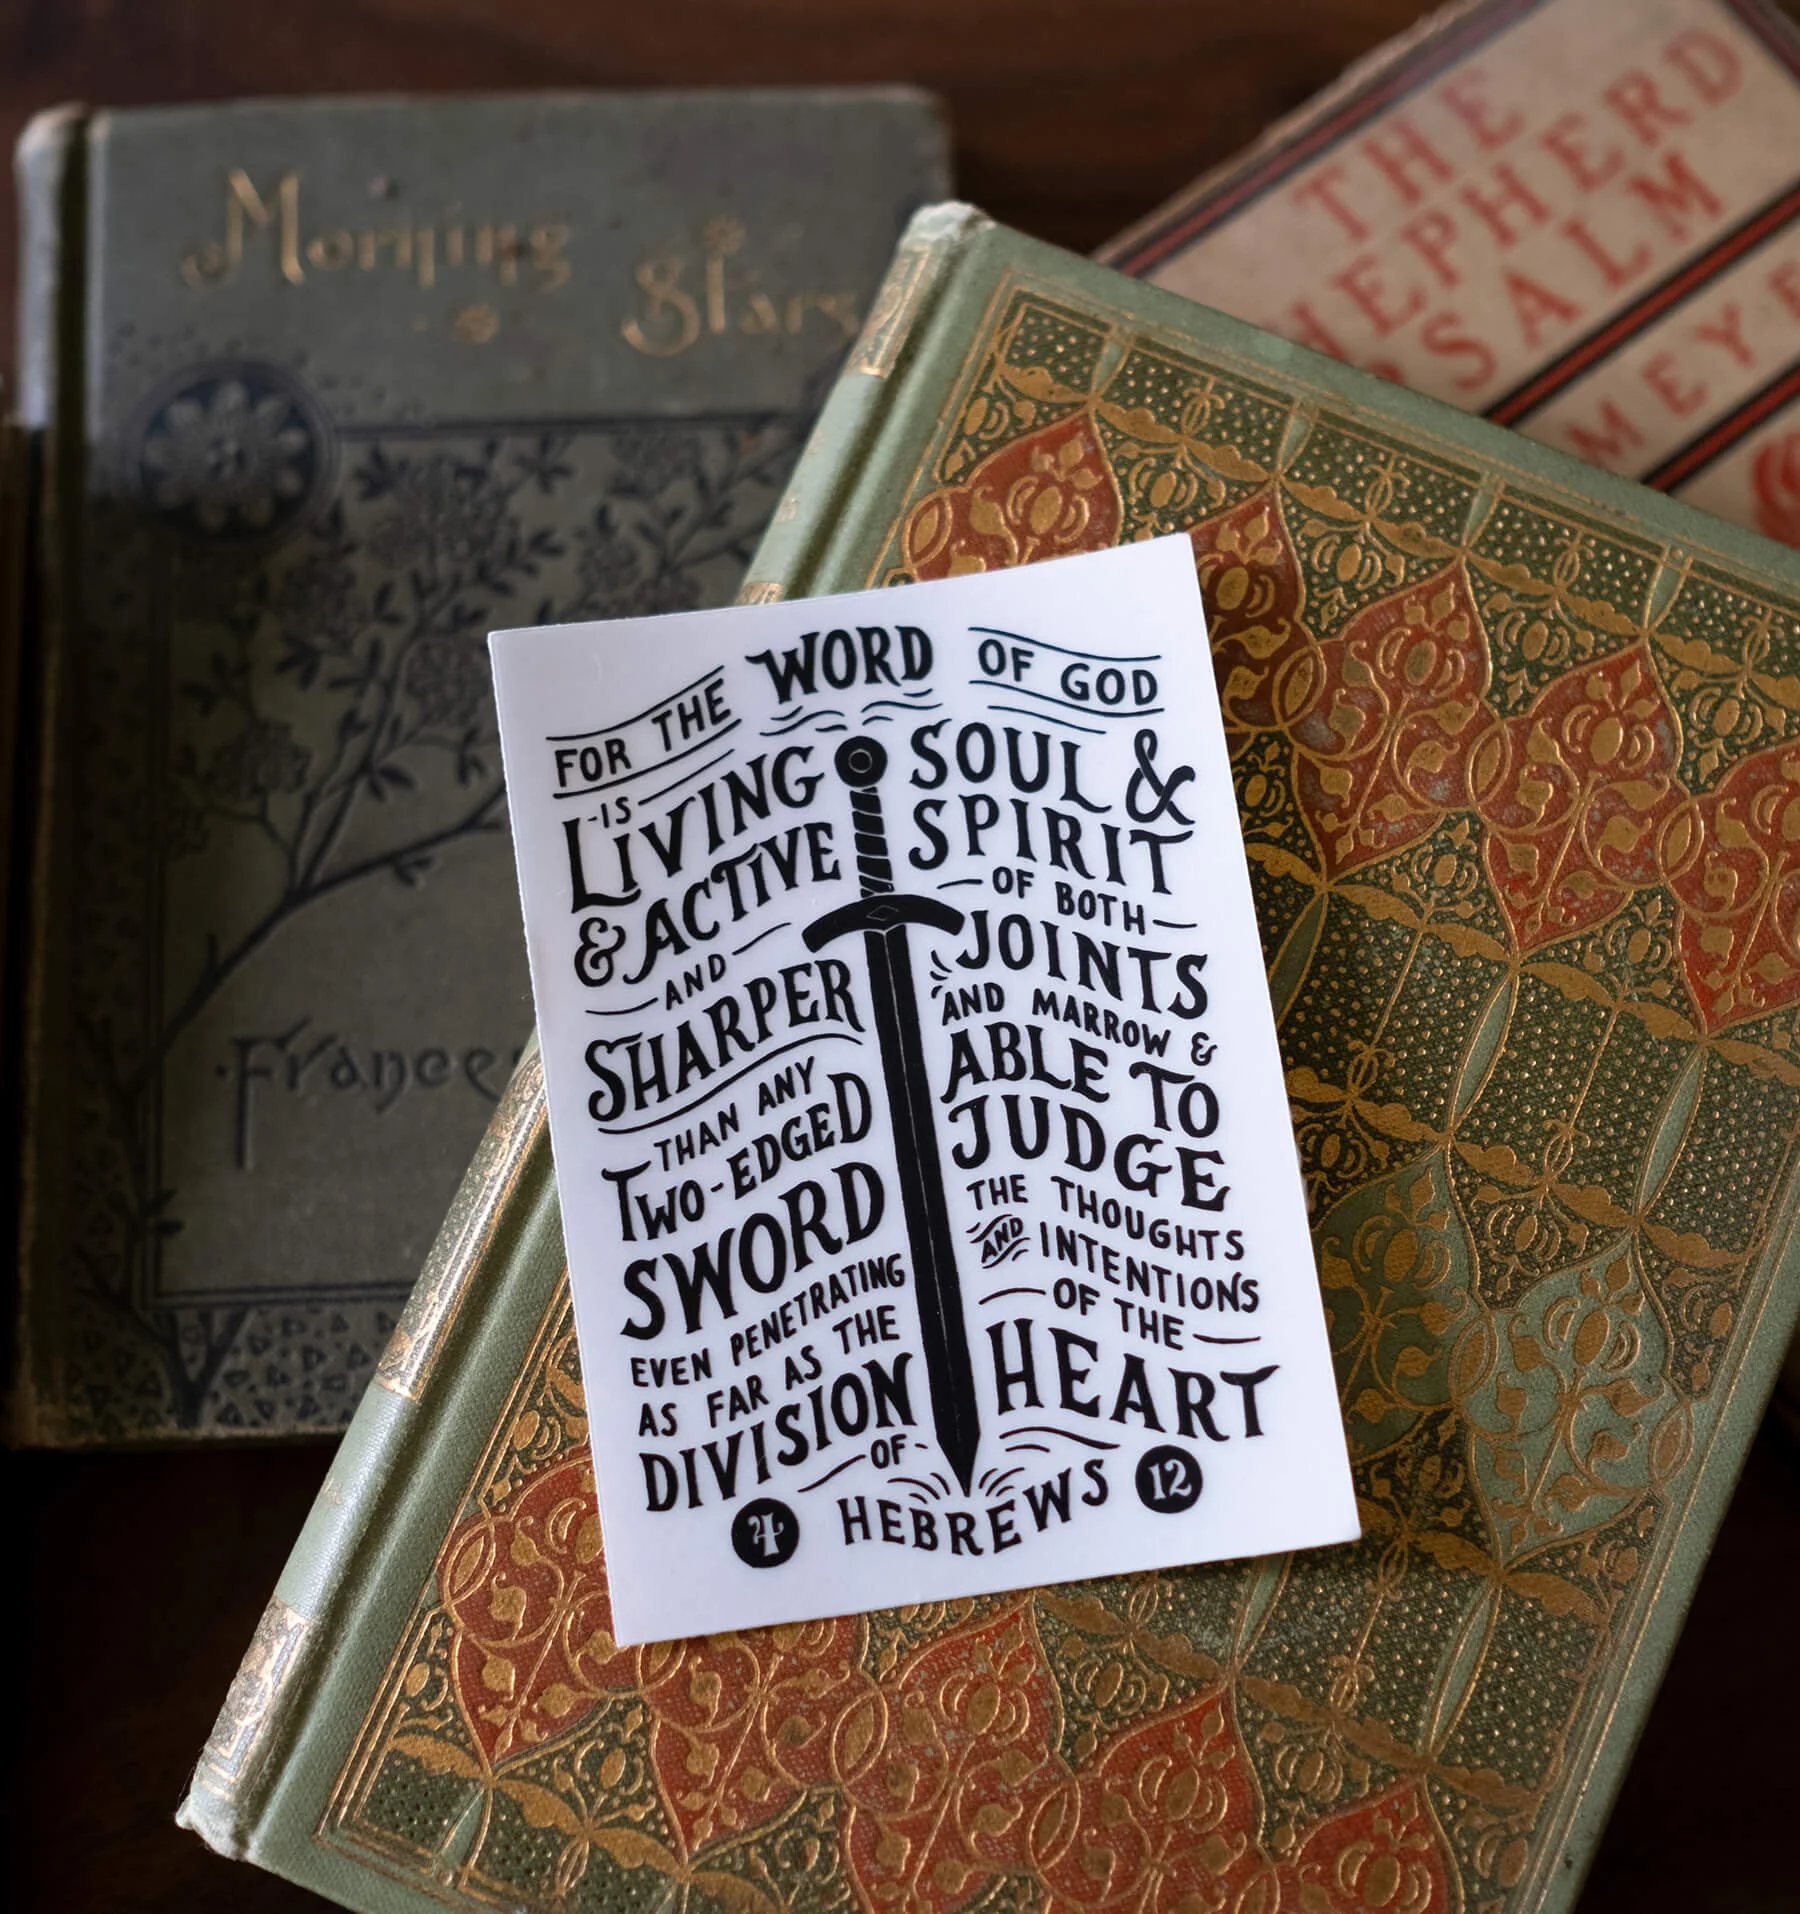 Morning
Stars
Frances
THE
SHEPHERD
PSALM
MEYE
FOR THE WORD OF GOD
-IS-
LIVING
& ACTIVE
AND
SHARPER
THAN ANY
TWO-EDGED
SWORD
EVEN PENETRATING
AS FAR AS THE
DIVISION
OF
SOUL &
SPIRIT
OF BOTH
JOINTS
AND MARROW &
ABLE TO
JUDGE
THE THOUGHTS
AND INTENTIONS
OF THE
HEART
4 HEBREWS 12